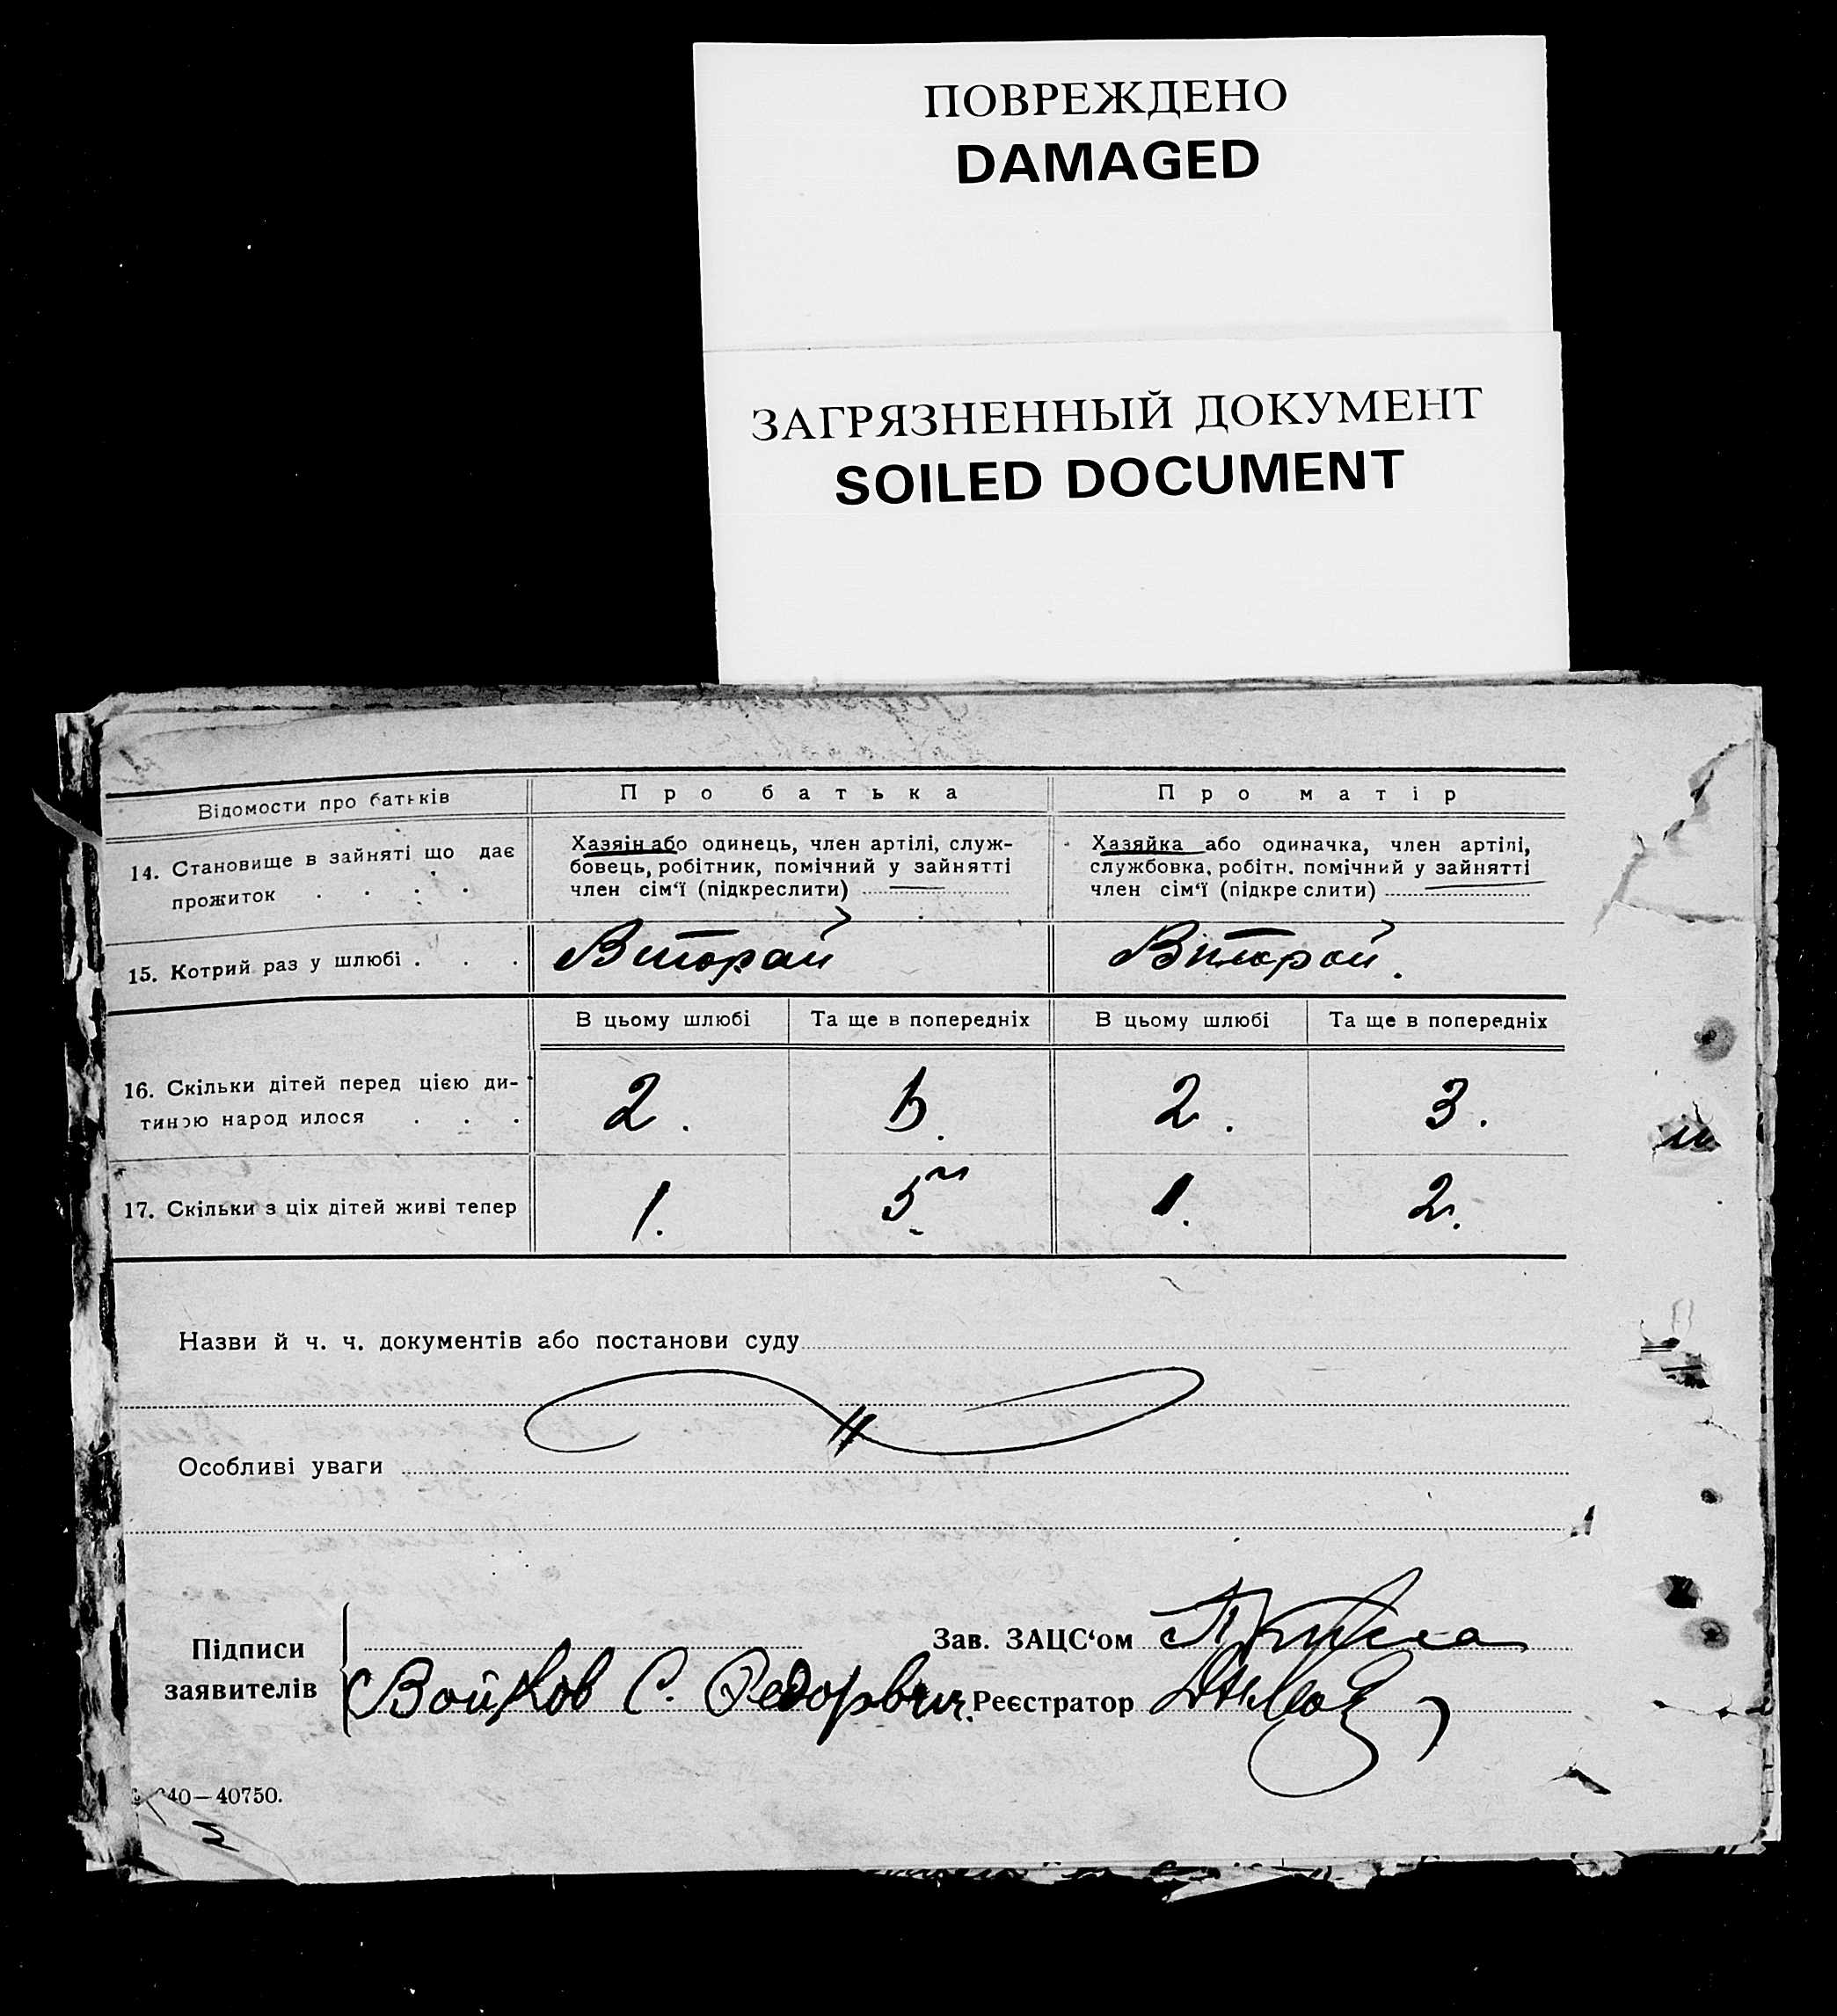 ПОВРЕЖДЕНО
DAMAGED
ЗАГРЯЗНЕННЫЙ ДОКУМЕНТ
SOILED DOCUMENT
Відомости про батьків
Про батька
Про матір
14. Становище в зайняті що дає
прожиток . . . .
Хазяїн або одинець, член артілі, служ-
бовець, робітник, помічний у зайнятті
член сім'ї (підкреслити)
Хазяйка або одиначка, член артілі,
службовка, робітн. помічний у зайнятті
член сім'ї (підкре слити)
15. Котрий раз у шлюбі . . .
Второй
Второй.
В цьому шлюбі
Та ще в попередніх
В цьому шлюбі
Та ще в попередніх
16. Скільки дітей перед цією ди-
тиною народ илося . . .
2.
2.
3.
17. Скільки з ціх дітей живі тепер
1.
5
1.
2.
Назви й ч. ч. документів або постанови суду
Особливі уваги
Підписи
заявителів
Зав. ЗАЦС'ом
Войков С. Федорвич.
Реєстратор
40—40750.